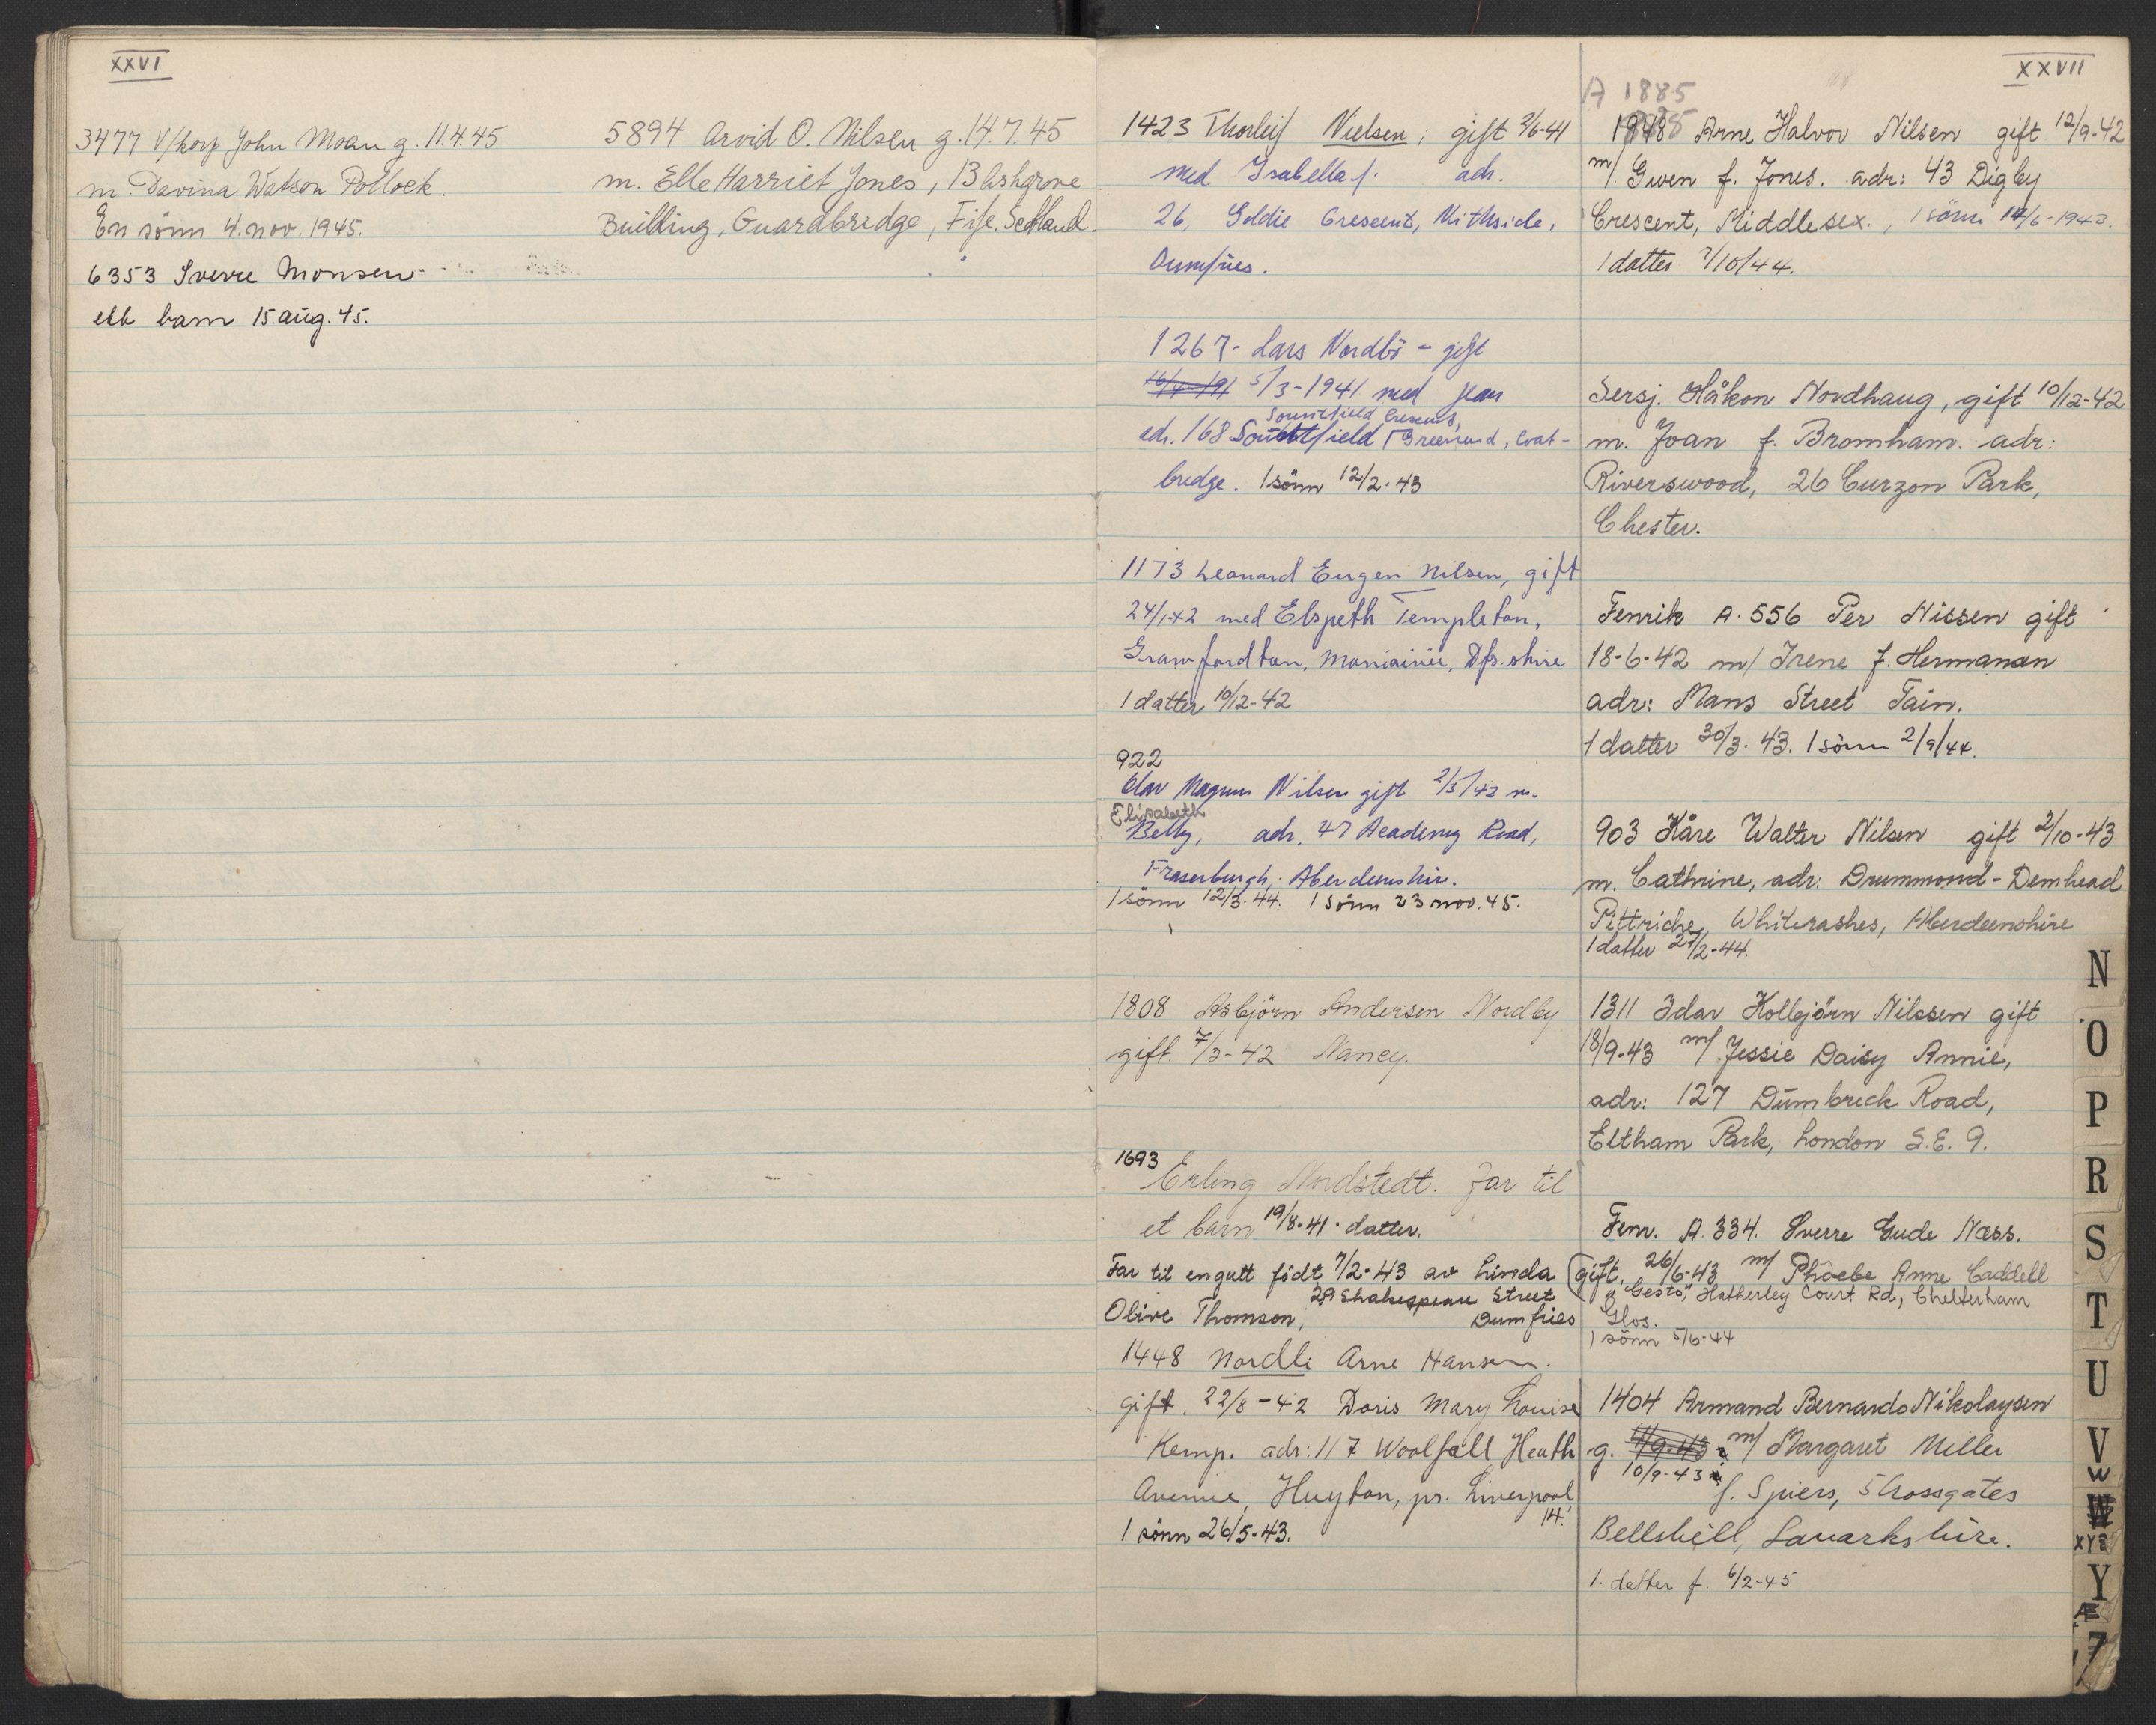 XXVI
3477 V/korp John Moan g. 11.4.45
m. Davina Watson Pollock.
En sönn 4. nov. 1945.
6353 Sverre Monsen
ett barn 15 aug. 45.
5894 Arvid O. Nilsen g. 14.7.45
m. Elle Harriet Jones, 13 Ashgrove
Building, Guardbridge, Fife. Scotland.
1423 Thorleif Nielsen; gift 2/6-41
med Isabella f. adr.
26, Goldie Crescent, Nithside,
Dumfries.
1267 - Lars Nordbö - gift
5/3-1941 med Jean
Sountfield Crescent,
adr. 168 Field Greenend, Coat-
bridge. 1 sönn 12/2-43
1173 Leonard Eugen Nilsen, gift
24/1-42 med Elspeth Templeton,
Crawfordton, Moniaive, Dfs.shire
1 datter 10/12-42
922
Olav Magnus Nilsen gift 2/5/42 m.
Elisabeth
Betty, adr. 47 Academy Road,
Fraserburgh, Aberdeenshire.
1 sönn 12/3-44. 1 sönn 23 nov. 45.
1808 Asbjörn Andersen Nordby
gift 7/3-42 Nancy.
1693
Erling Nordstedt. Far til
et barn 19/8-41. datter.
Far til en gutt födt 7/2-43 av Linda
29 Shakespeare Street
Olive Thomson, Dumfries
1448 Nordli Arne Hansen.
gift. 22/8-42 Doris Mary Louise
Kemp. adr: 117 Woolfall Heath
Avenue, Huyton, pr. Liverpool
14.
1 sönn 26/5-43.
XXVII
A 1885
1948 Arne Halvor Nilsen gift 12/9-42
m/ Gwen f. Jones. adr: 43 Digby
Crescent, Middlesex., 1 sönn 14/6-1943.
1 datter 7/10/44.
Sersj. Håkon Nordhaug, gift 10/12-42
m. Joan f. Bromham. adr:
Riverswood, 26 Curzon Park,
Chester.
Fenrik A. 556 Per Nissen gift
18-6-42 m/ Irene f. Hermansen
adr: Mans Street Tain.
1 datter 30/3. 43. 1 sönn 2/9/44.
903 Kåre Walter Nilsen gift 2/10-43
m. Cathrine, adr: Drummond - Demhead
Pittriche, Whiterashes, Aberdeenshire
1 datter 27/2-44.
1311 Idar Kolbjörn Nilssen gift
18/9-43 m/ Jessie Daisy Annie,
adr: 127 Dumbreck Road,
Eltham Park, London S.E. 9.
Fenr. A. 334. Sverre Gude Næss.
gift. 26/6-43 m/ Phoebe Anne Caddell
"Gesto", Hatherley Court Rd, Cheltenham
Glos.
1 sönn 5/6-44
1404 Armand Bernardo Nikolaysen
g. 11/9-43 m/ Margaret Miller
10/9-43
f. Spiers, 5 Crossgates
Bellshill, Lanarkshire.
1. datter f. 6/2-45
N
O
P
R
S
T
U
V
W
W
XYZ
Y
Æ